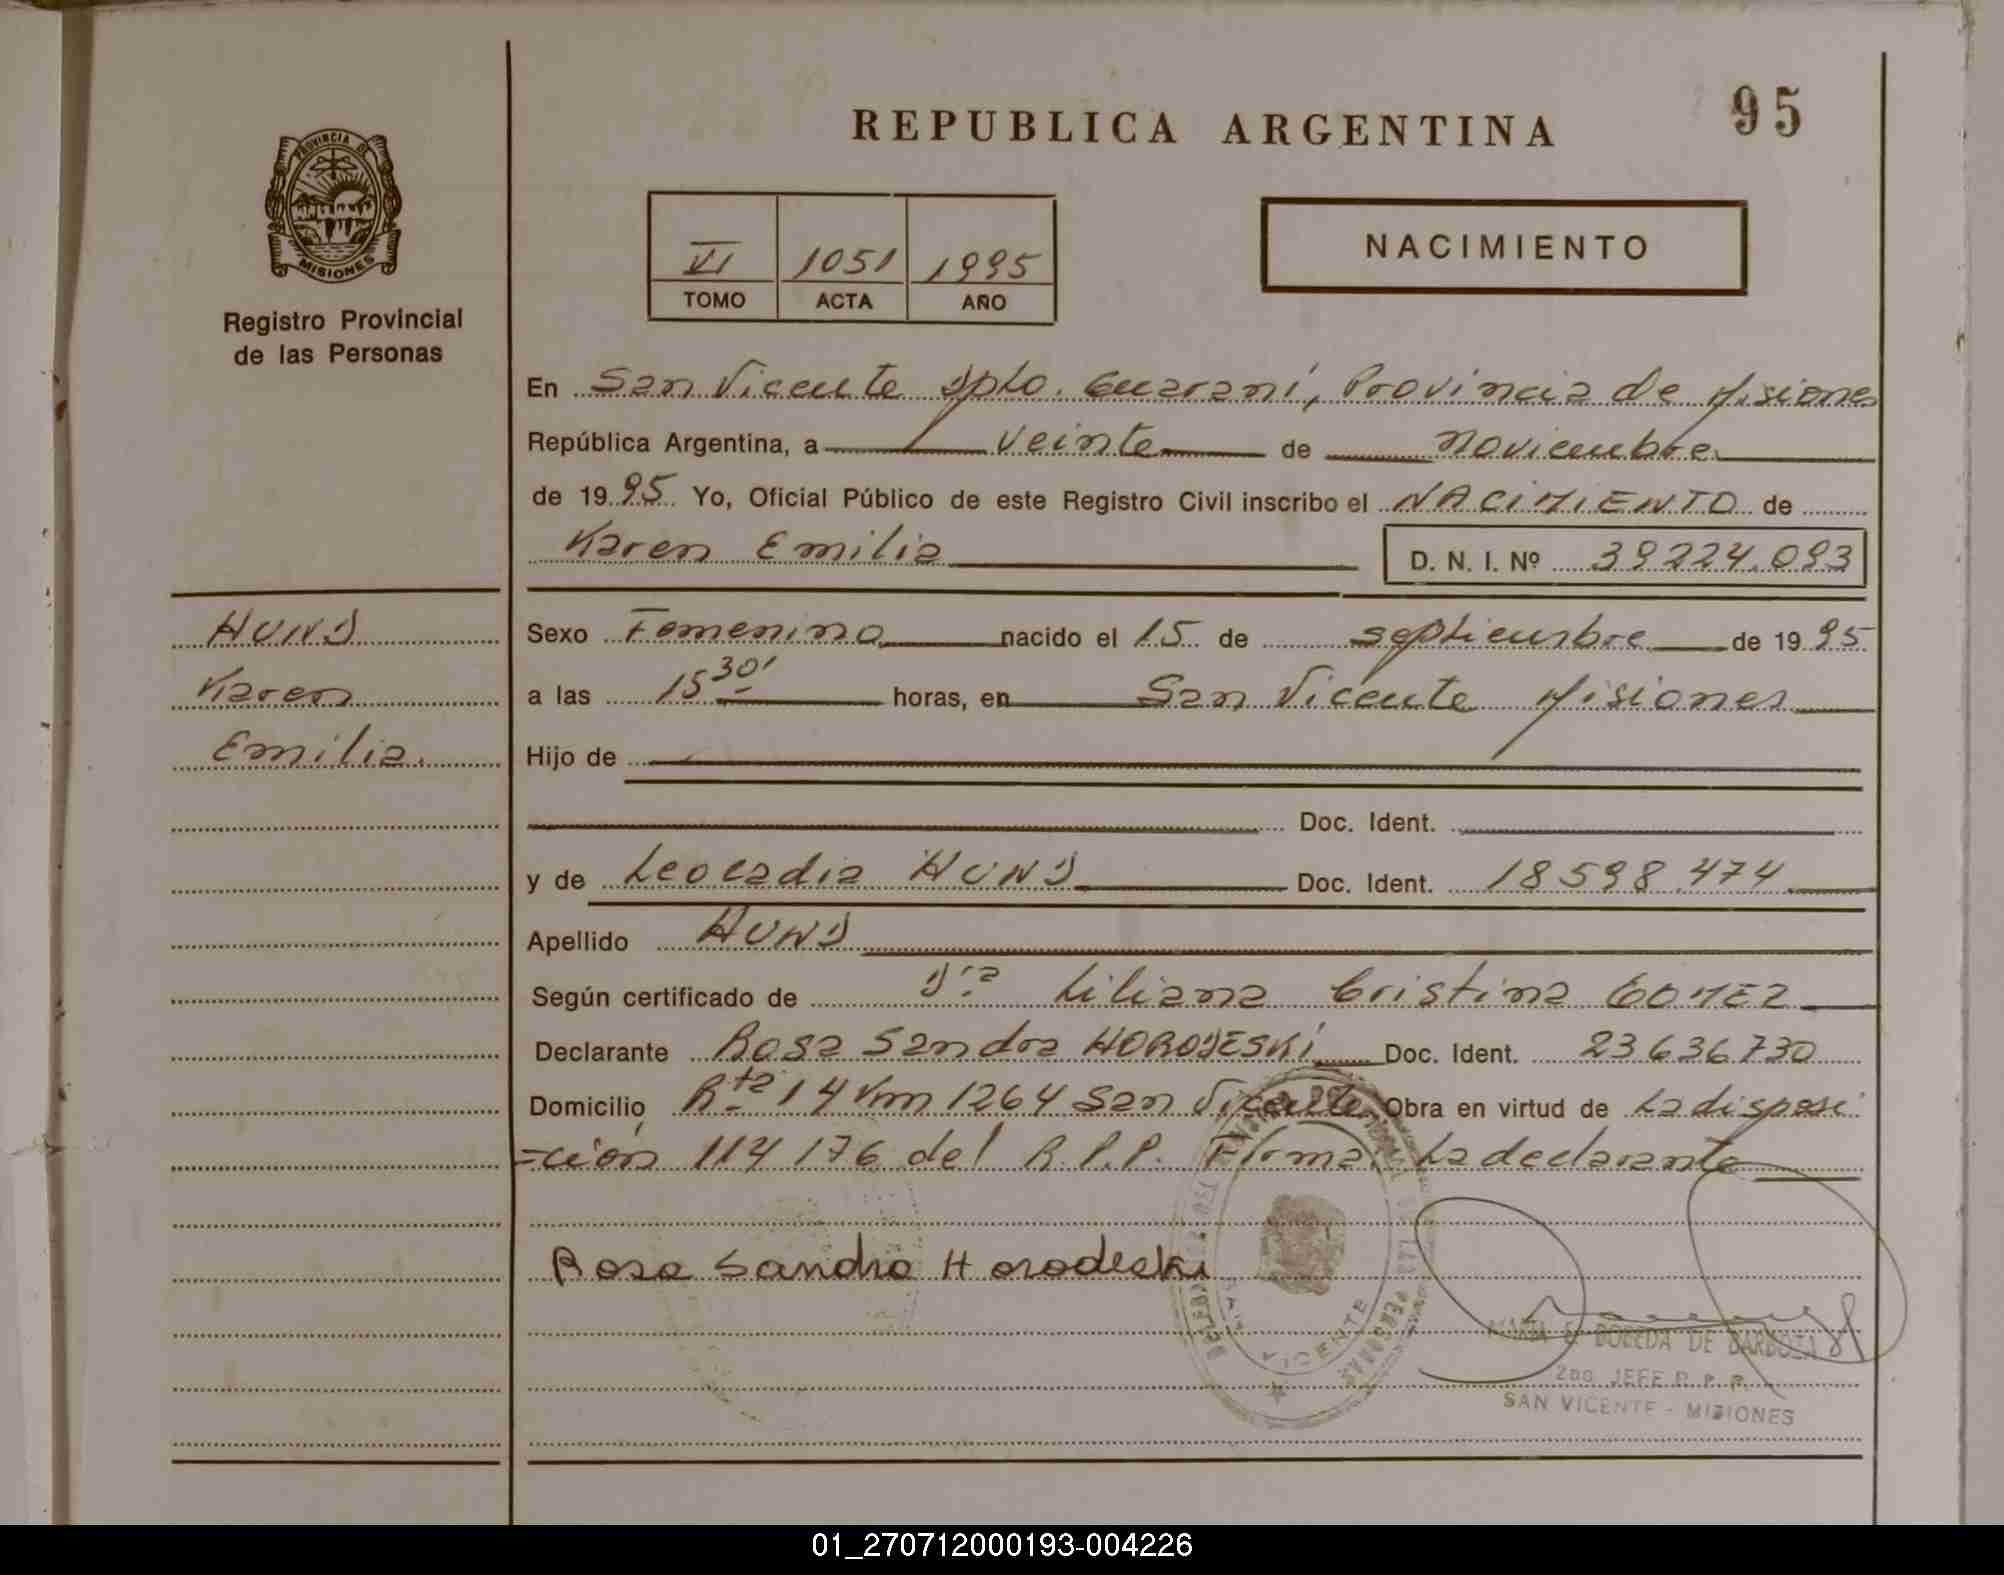 REPUBLICA ARGENTINA
95
PROVINCIA DE
MISIONES
Registro Provincial
de las Personas
VI 1051 1995
TOMO ACTA AÑO
NACIMIENTO
En San Vicente Dpto. Guaraní, Provincia de Misiones
República Argentina, a veinte de Noviembre
de 1995 Yo, Oficial Público de este Registro Civil inscribo el NACIMIENTO de
Karen Emilia D. N. I. Nº 39224.093
HUND
Karen
Emilia.
Sexo Femenino nacido el 15 de septiembre de 1995
a las 15 30' horas, en San Vicente Misiones
Hijo de
Doc. Ident.
y de Leocadia HUND Doc. Ident. 18598.474
Apellido HUND
Según certificado de Dra Liliana Cristina GOMEZ
Declarante Rosa Sandra HORODESKI Doc. Ident. 23636730
Domicilio Rta 14 Km 1264 San Vicente Obra en virtud de La disposi
=ción 114 176 del R.P.P. Firma. La declarante
Rosa Sandra Horodeski
SAN VICENTE
DE BARBOZA
2DO. JEFE R. P. P.
SAN VICENTE - MISIONES
01_270712000193-004226